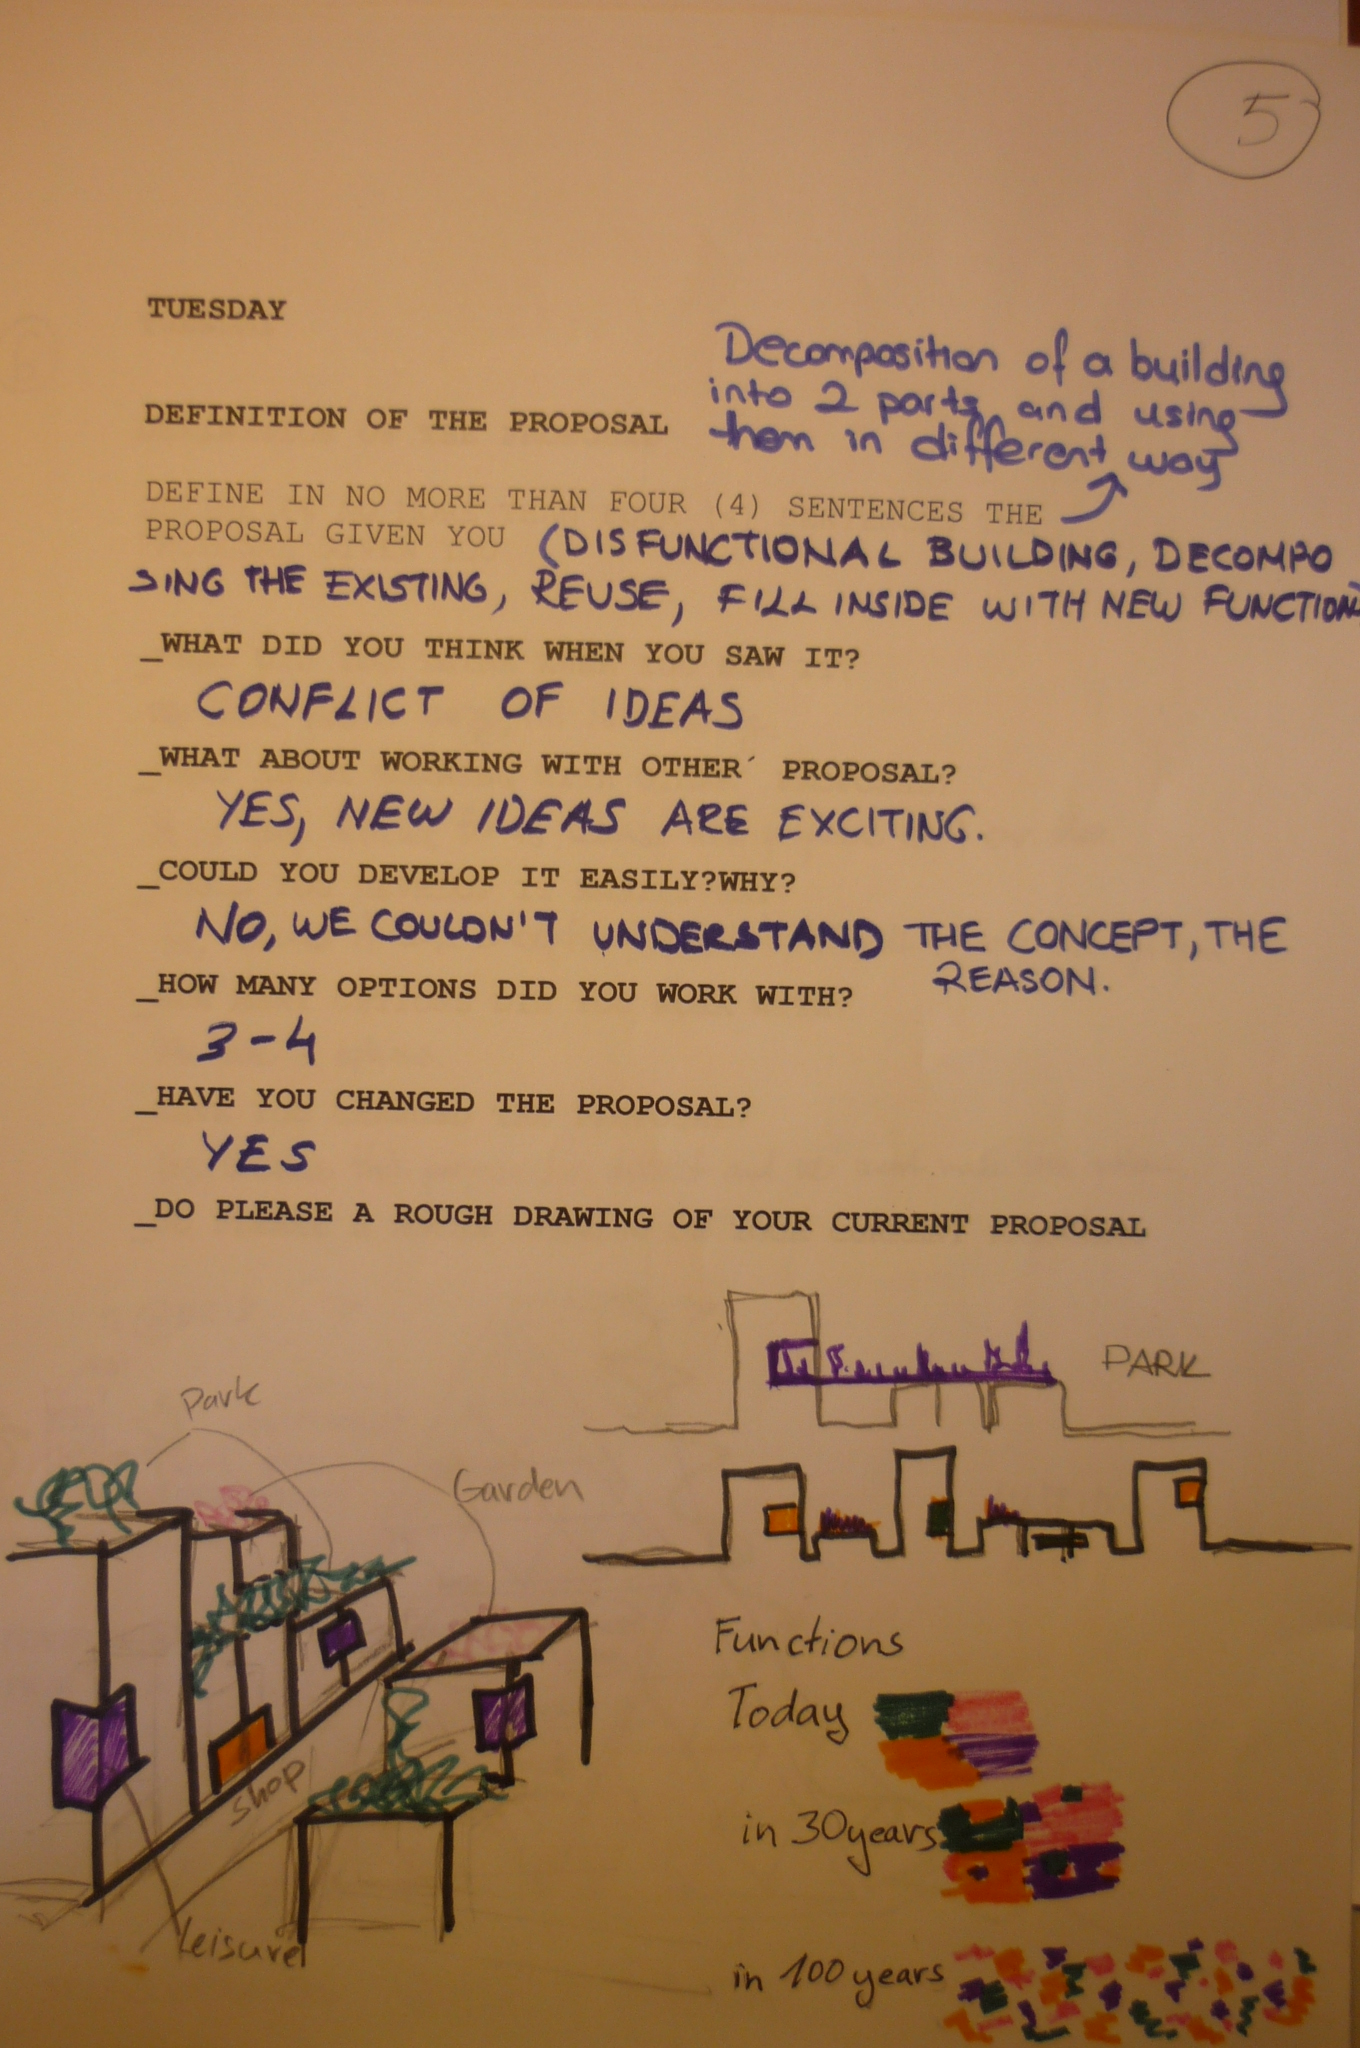 5
TUESDAY
Decomposition of a building
into 2 parts, and using
them in different way
DEFINITION OF THE PROPOSAL
DEFINE IN NO MORE THAN FOUR (4) SENTENCES THE
PROPOSAL GIVEN YOU (DISFUNCTIONAL BUILDING, DECOMPO
SING THE EXISTING, REUSE, FILL INSIDE WITH NEW FUNCTION
_WHAT DID YOU THINK WHEN YOU SAW IT?
CONFLICT OF IDEAS
_WHAT ABOUT WORKING WITH OTHER´ PROPOSAL?
YES, NEW IDEAS ARE EXCITING.
_COULD YOU DEVELOP IT EASILY?WHY?
NO, WE COULDN'T UNDERSTAND THE CONCEPT, THE
REASON.
_HOW MANY OPTIONS DID YOU WORK WITH?
3-4
_HAVE YOU CHANGED THE PROPOSAL?
YES
_DO PLEASE A ROUGH DRAWING OF YOUR CURRENT PROPOSAL
PARK
Park
Garden
shop
Leisure
Functions
Today
in 30 years
in 100 years